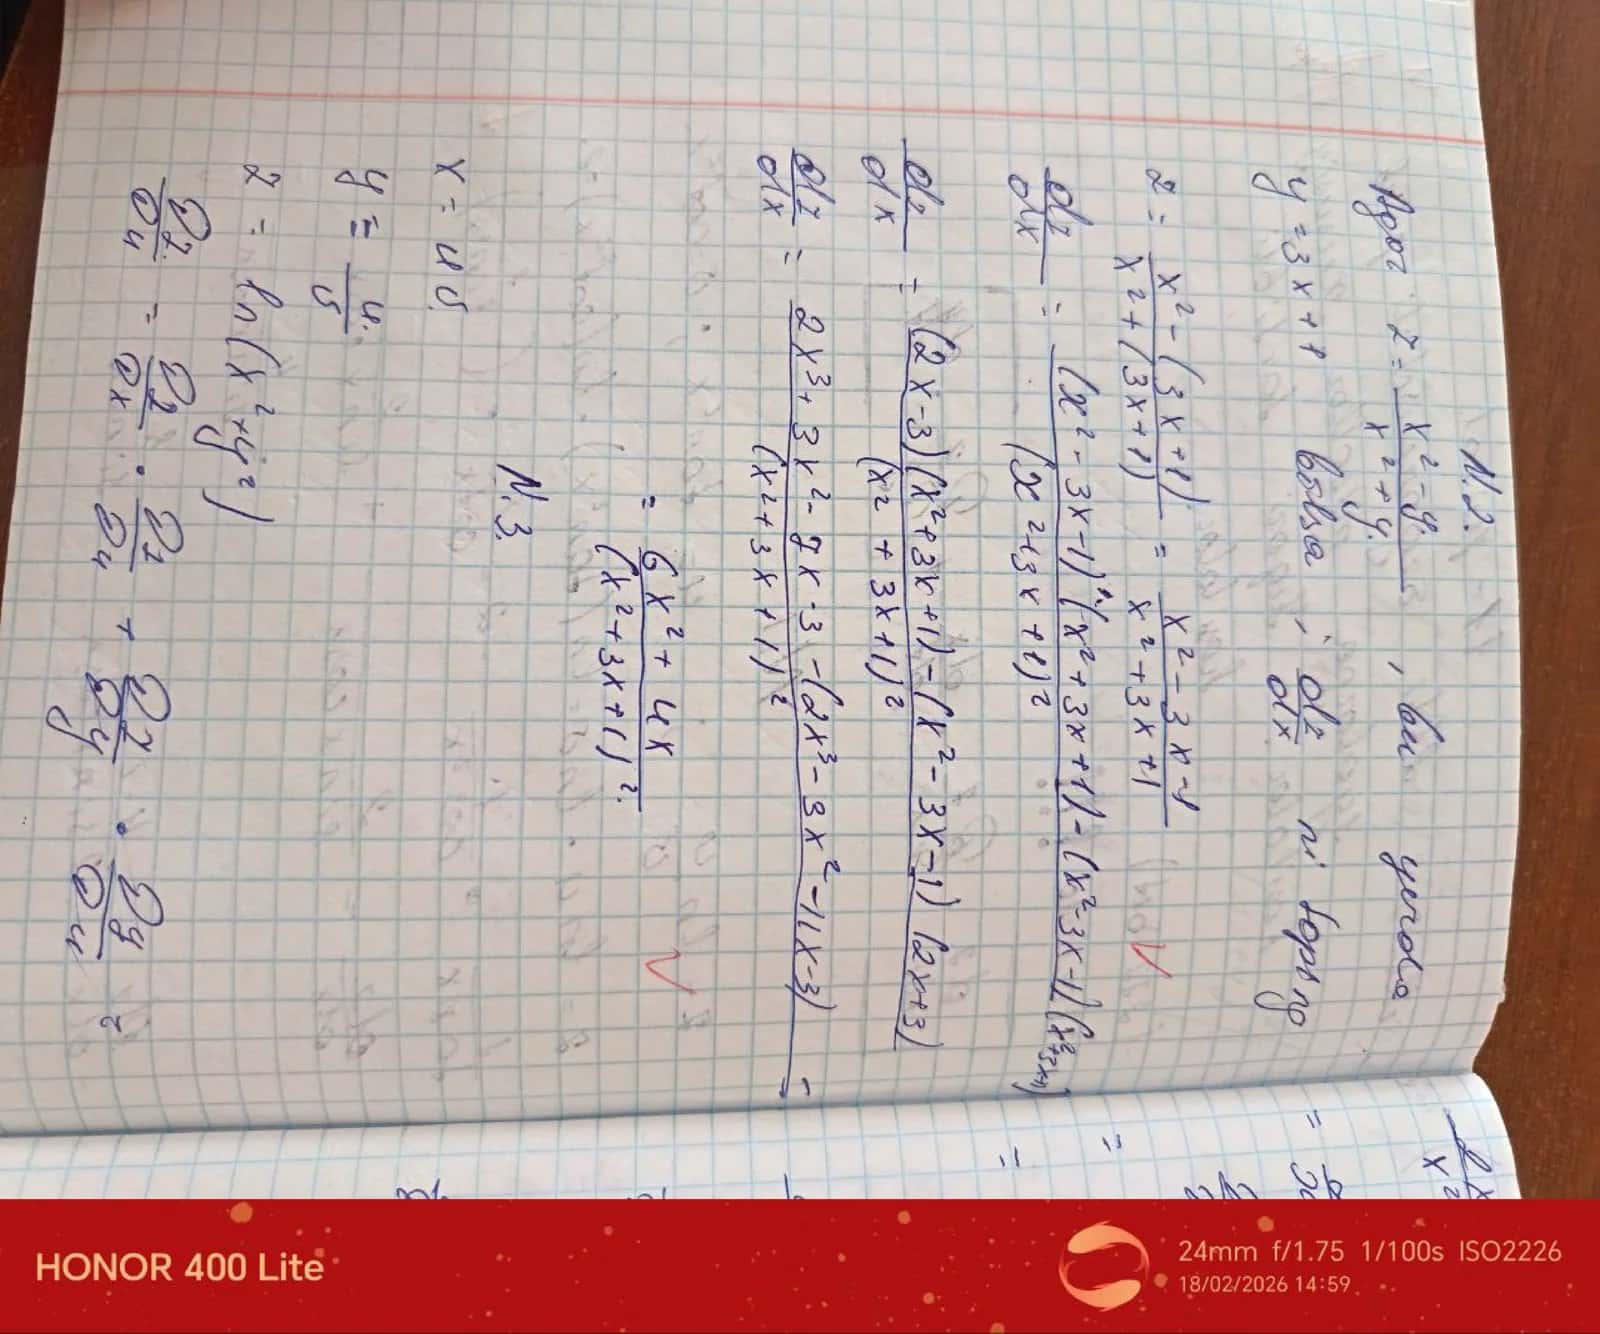 N.2.
Agar z = (x² - y)/(x² + y), bu yerda
y = 3x + 1 bo'lsa, dz/dx ni toping
z = (x² - (3x + 1))/(x² + (3x + 1)) = (x² - 3x - 1)/(x² + 3x + 1)
dz/dx = ((x² - 3x - 1)' (x² + 3x + 1) - (x² - 3x - 1)(x² + 3x + 1))/(x² + 3x + 1)²
dz/dx = ((2x - 3)(x² + 3x + 1) - (x² - 3x - 1)(2x + 3))/(x² + 3x + 1)²
dz/dx = (2x³ + 3x² - 7x - 3 - (2x³ - 3x² - 11x - 3))/(x² + 3x + 1)² =
= (6x² + 4x)/(x² + 3x + 1)².
N.3.
x = u v
y = u/v
z = ln(x² + y²)
∂z/∂u = ∂z/∂x · ∂z/∂u + ∂z/∂y · ∂y/∂u =
HONOR 400 Lite
24mm f/1.75 1/100s ISO2226
18/02/2026 14:59